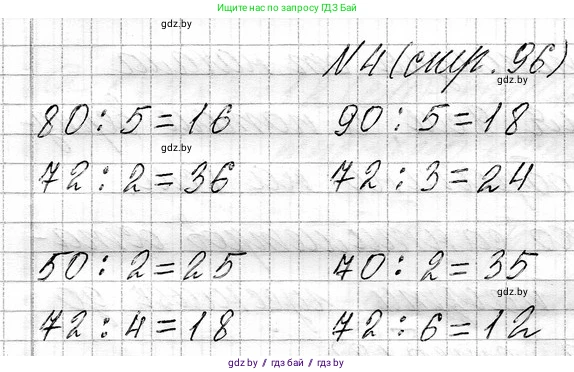 Ищите нас по запросу ГДЗ Бай
gdz.by
№4 (стр. 96)
gdz.by
80 : 5 = 16 90 : 5 = 18
gdz.by
72 : 2 = 36 72 : 3 = 24
50 : 2 = 25 70 : 2 = 35
gdz.by
72 : 4 = 18 72 : 6 = 12
gdz by // гдз бай // gdz by